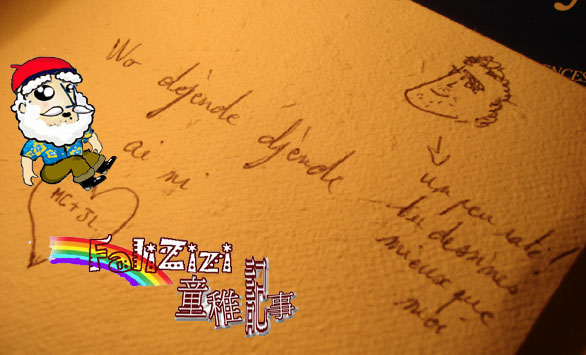 Wo déjende djende
ai ni
un peu raté!
tu dessines
mieux que
moi
MC + JL
FaliZizi
童稚記事
ENCES